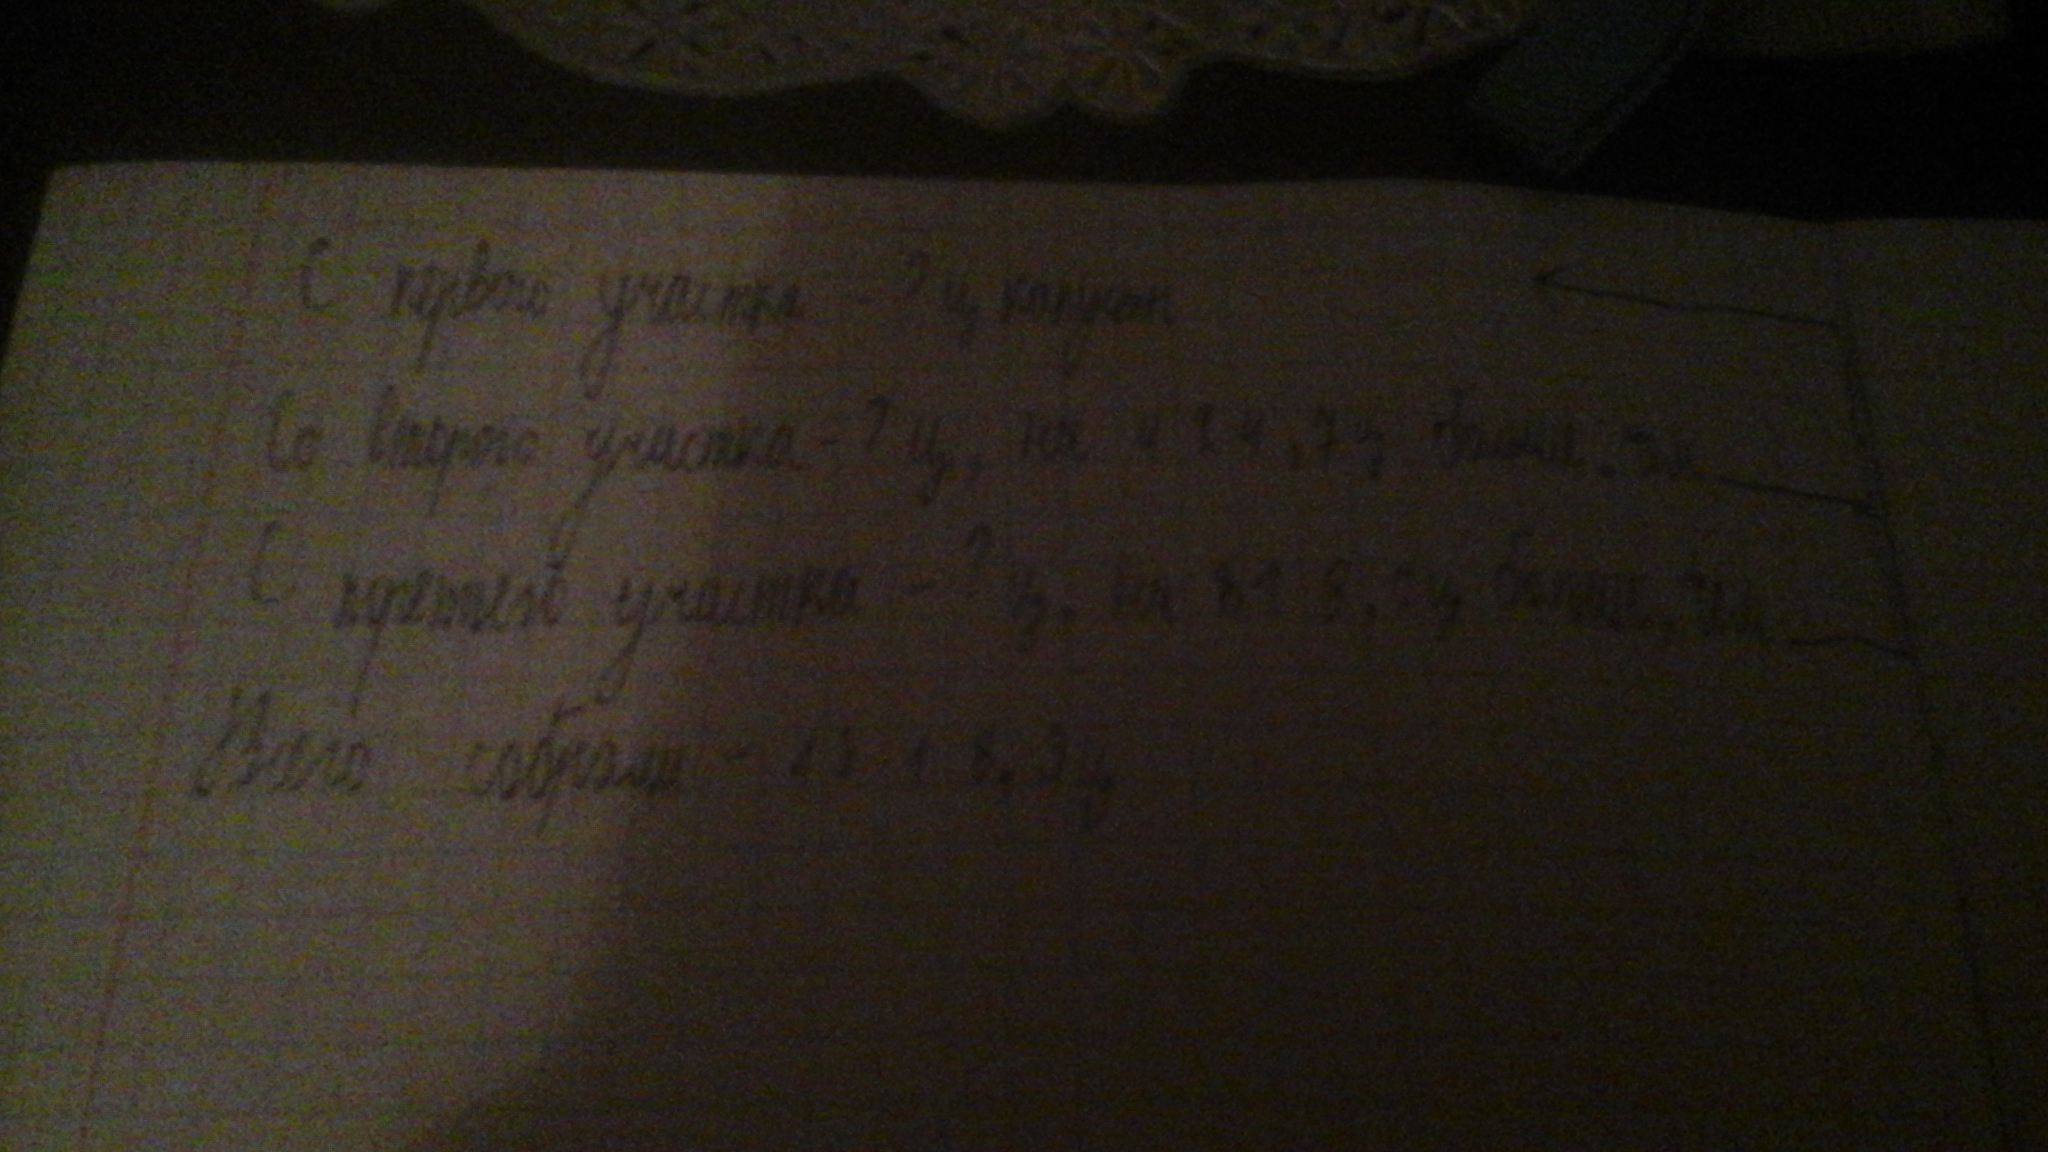 С первого участка - ? ц капусты
Со второго участка - ? ц, на 424,7ц больше, чем
С третьей участка - ? ц, на ц больше, чем
Всего собрали - ц